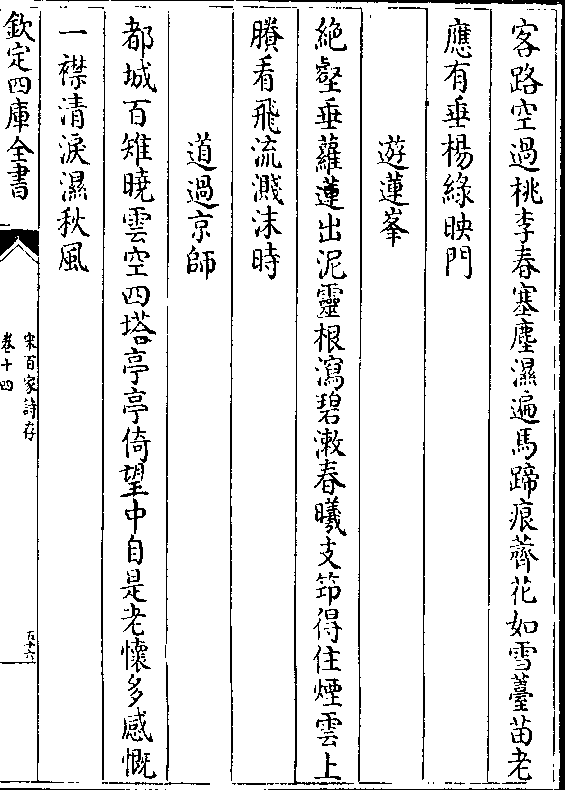 客路空過桃李春塞塵濕遍馬蹄痕薺花如雪薹苗老
應有垂楊綠映門
遊蓮峯
絶壑垂蘿蓮出泥靈根瀉碧漱春曦支笻得住煙雲上
賸看飛流濺沫時
道過京師
都城百雉曉雲空四塔亭亭倚望中自是老懷多感慨
一襟清淚濕秋風
欽定四庫全書
宋百家詩存
卷十四
五十六